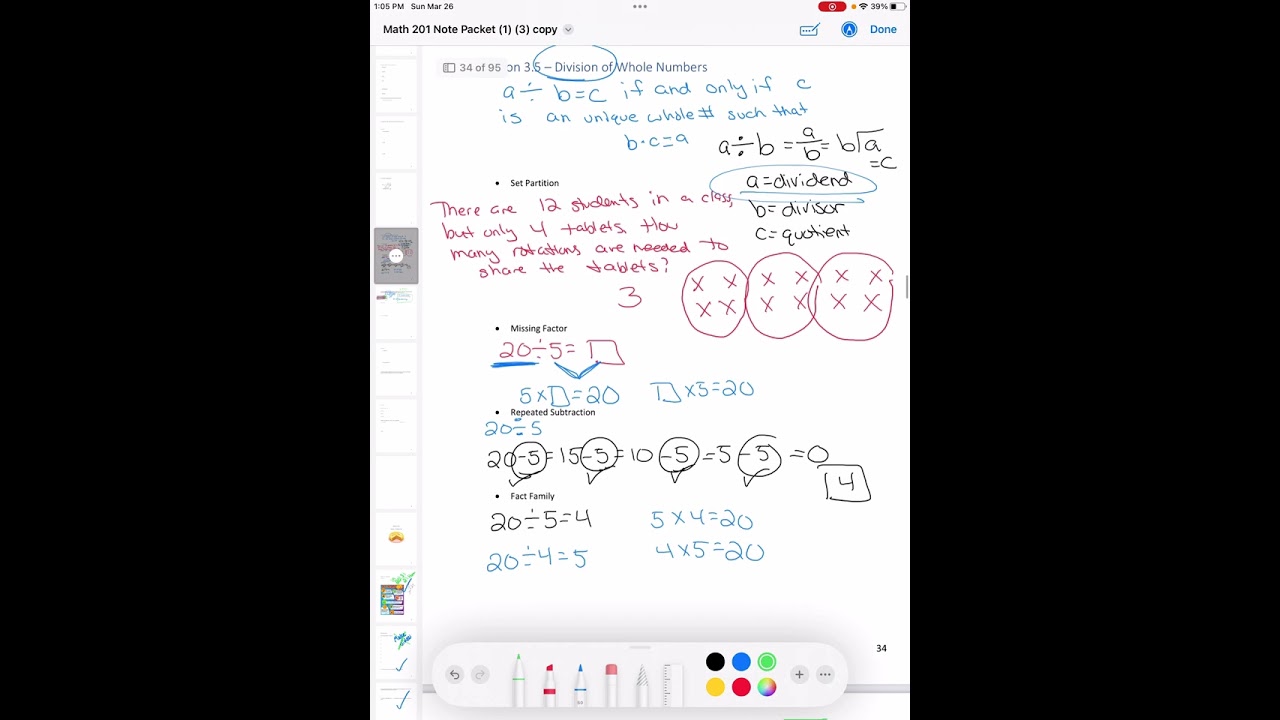 1:05 PM Sun Mar 26
39%
Math 201 Note Packet (1) (3) copy
Done
34 of 95
on 3.5 – Division of Whole Numbers
a ÷ b = c if and only if c
is an unique whole # such that
b·c=a
a÷b = a/b = b⟌a
=c
a=dividend
b= divisor
c= quotient
• Set Partition
There are 12 students in a class,
but only 4 tablets. How
many rotations are needed to
share the tablets?
3
x x x x x x
x x x x x x
• Missing Factor
20÷5=□
5×□=20 □×5=20
• Repeated Subtraction
20÷5
20-5=15-5=10-5=5-5=0
4
• Fact Family
20÷5=4 5×4=20
20÷4=5 4×5=20
34